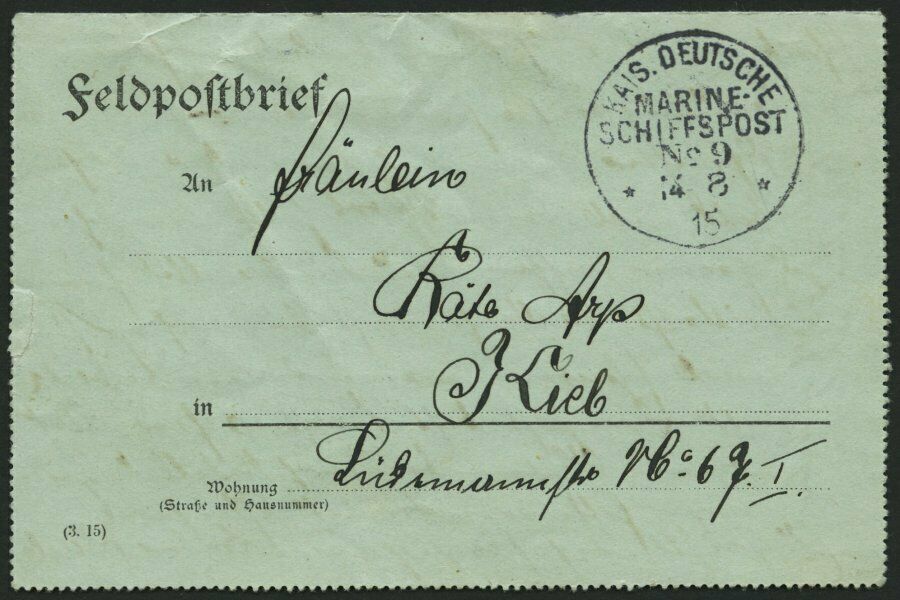 Feldpostbrief
KAIS. DEUTSCHE
MARINE-
SCHIFFSPOST
No 9
14 8
15
An Fräulein
Käte Arp
in Kiel
Lüdemannstr No 67. I.
Wohnung
(Straße und Hausnummer)
(3. 15)